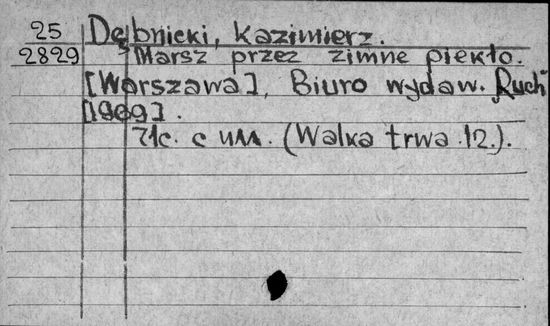 25 Dębnicki, Kazimierz.
2829 Marsz przez zimne piekło.
[Warszawa], Biuro wydaw. „Ruch"
[1969].
71c. с илл. (Walka trwa 12.).